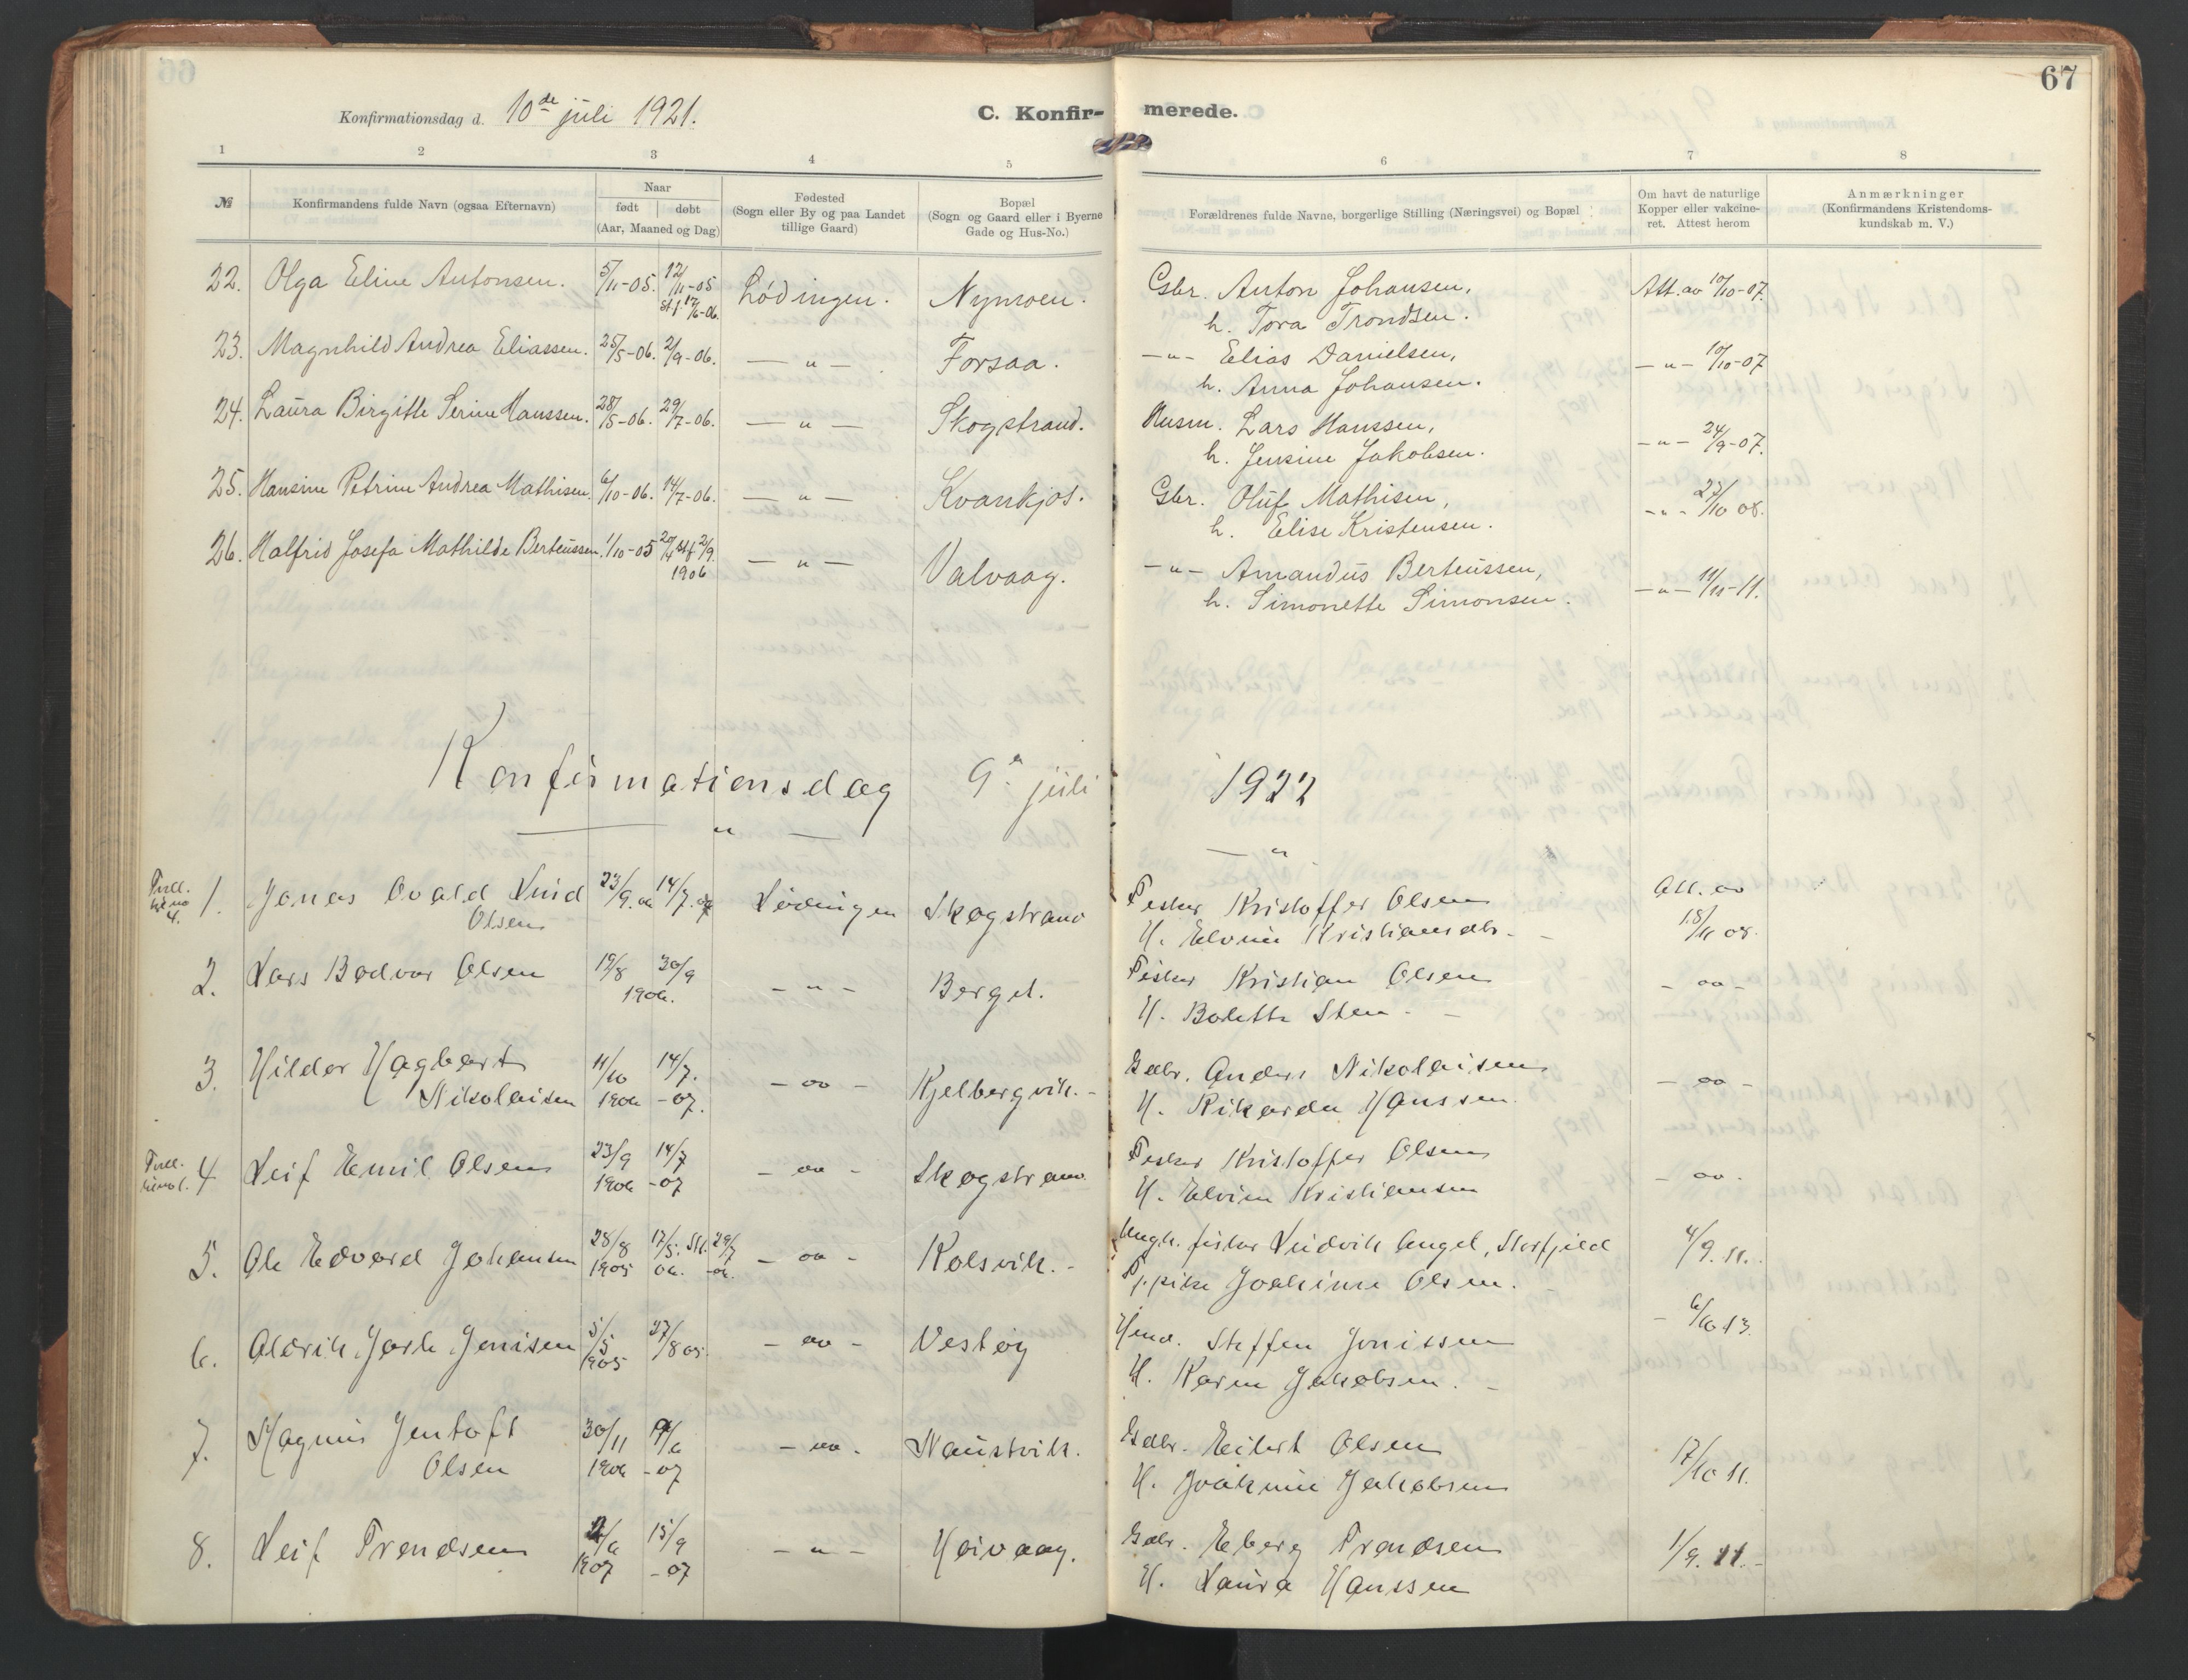 67
Konfirmationsdag d. 10de juli 1921.
C. Konfir- merede.
1 2 3 4 5 6 7 8
№ Konfirmandens fulde Navn (ogsaa Efternavn) Naar født døbt (Aar, Maaned og Dag) Fødested (Sogn eller By og paa Landet tillige Gaard) Bopæl (Sogn og Gaard eller i Byerne Gade og Hus-No.) Forældrenes fulde Navne, borgerlige Stilling (Næringsvei) og Bopæl Om havt de naturlige Kopper eller vakcineret. Attest herom Anmærkninger (Konfirmandens Kristendomskundskab m. V.)
22. Olga Eline Antonsen. 5/11-05. 12/11-05 stf. 17/6-06. Lødingen. Nymoen. Gbr. Anton Johansen, Att. av 10/10-07.
h. Tora Trondsen.
23. Magnhild Andrea Eliassen. 25/5-06. 2/9-06. — " — Forsaa. —"— Elias Danielsen, —"— 10/10-07
h. Anna Johansen.
24. Laura Birgitte Serine Hanssen. 28/5-06. 29/7-06. — " — Skogstrand. Husm. Lars Hanssen, —"— 24/9-07.
h. Jensine Jakobsen.
25. Hansine Petrine Andrea Mathisen. 6/10-06. 14/7-06. — " — Kvankjos. Gbr. Oluf Mathisen, —"— 23/10 08.
h. Elise Kristensen.
26. Halfrid Josefa Mathilde Berteussen. 1/10-05 20/4 stf 2/9. 1906 — " — Valvaag. —"— Amandus Berteussen, —"— 11/10-11.
h. Simonette Simonsen.
Konfirmationsdag 9de juli 1922
— " —
— " —
Tvill. til no 4. 1. Jonas Ovald Lind 23/9.06 14/7.07 Lødingen Skogstrand Fisker Kristoffer Olsen Att. av
Olsen H. Elvine Kristiansdtr. 18/11 08.
2. Lars Bodvar Olsen 19/8 30/9 1906. - " - Berget. Fisker Kristian Olsen - oo -
H. Bolette Sten.
3. Hildor Hagbart 11/10 1906 14/7. -07. - oo - Kjelbergvik. Gdbr. Anders Nikolaisen - oo -
Nikolaisen H. Rikarda Hanssen.
Tvill. til no 1. 4 Leif Emil Olsen 23/9 1906 14/7 -07 - oo - Skogstrand Fisker Kristoffer Olsen - oo -
H. Elvine Kristiansen
5. Ole Edvard Johansen 28/8 1905 17/5. 06. Stf. 29/7 -06. - oo - Kolsvik. Ungk. fisker Ludvik Angel, Storfjeld 4/9. 11.
P.pike Joakime Olsen.
6. Aldrik Jarle Jenisen 5/5 1905 27/8 05. - oo - Vestøy Hmd. Steffen Jenissen - 6/10 13.
H. Karen Jakobsen.
7. Magnus Jentoft 30/11 1906 9/6 -07 - oo - Naustvik. Gdbr. Eilert Olsen 17/10 11.
Olsen H. Joakime Jakobsen
8. Leif Trondsen 2/6 1907 15/9 -07 - " - Heivaag. Gdbr. Eberg Trondsen 1/9. 11.
H. Laura Hanssen